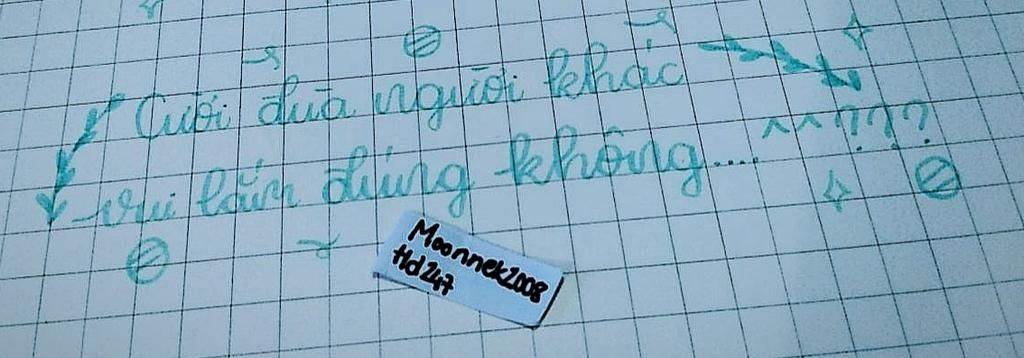 Cưới đùa người khác
vui lắm đúng không.... ^^???
Moonnek2008
Hd247